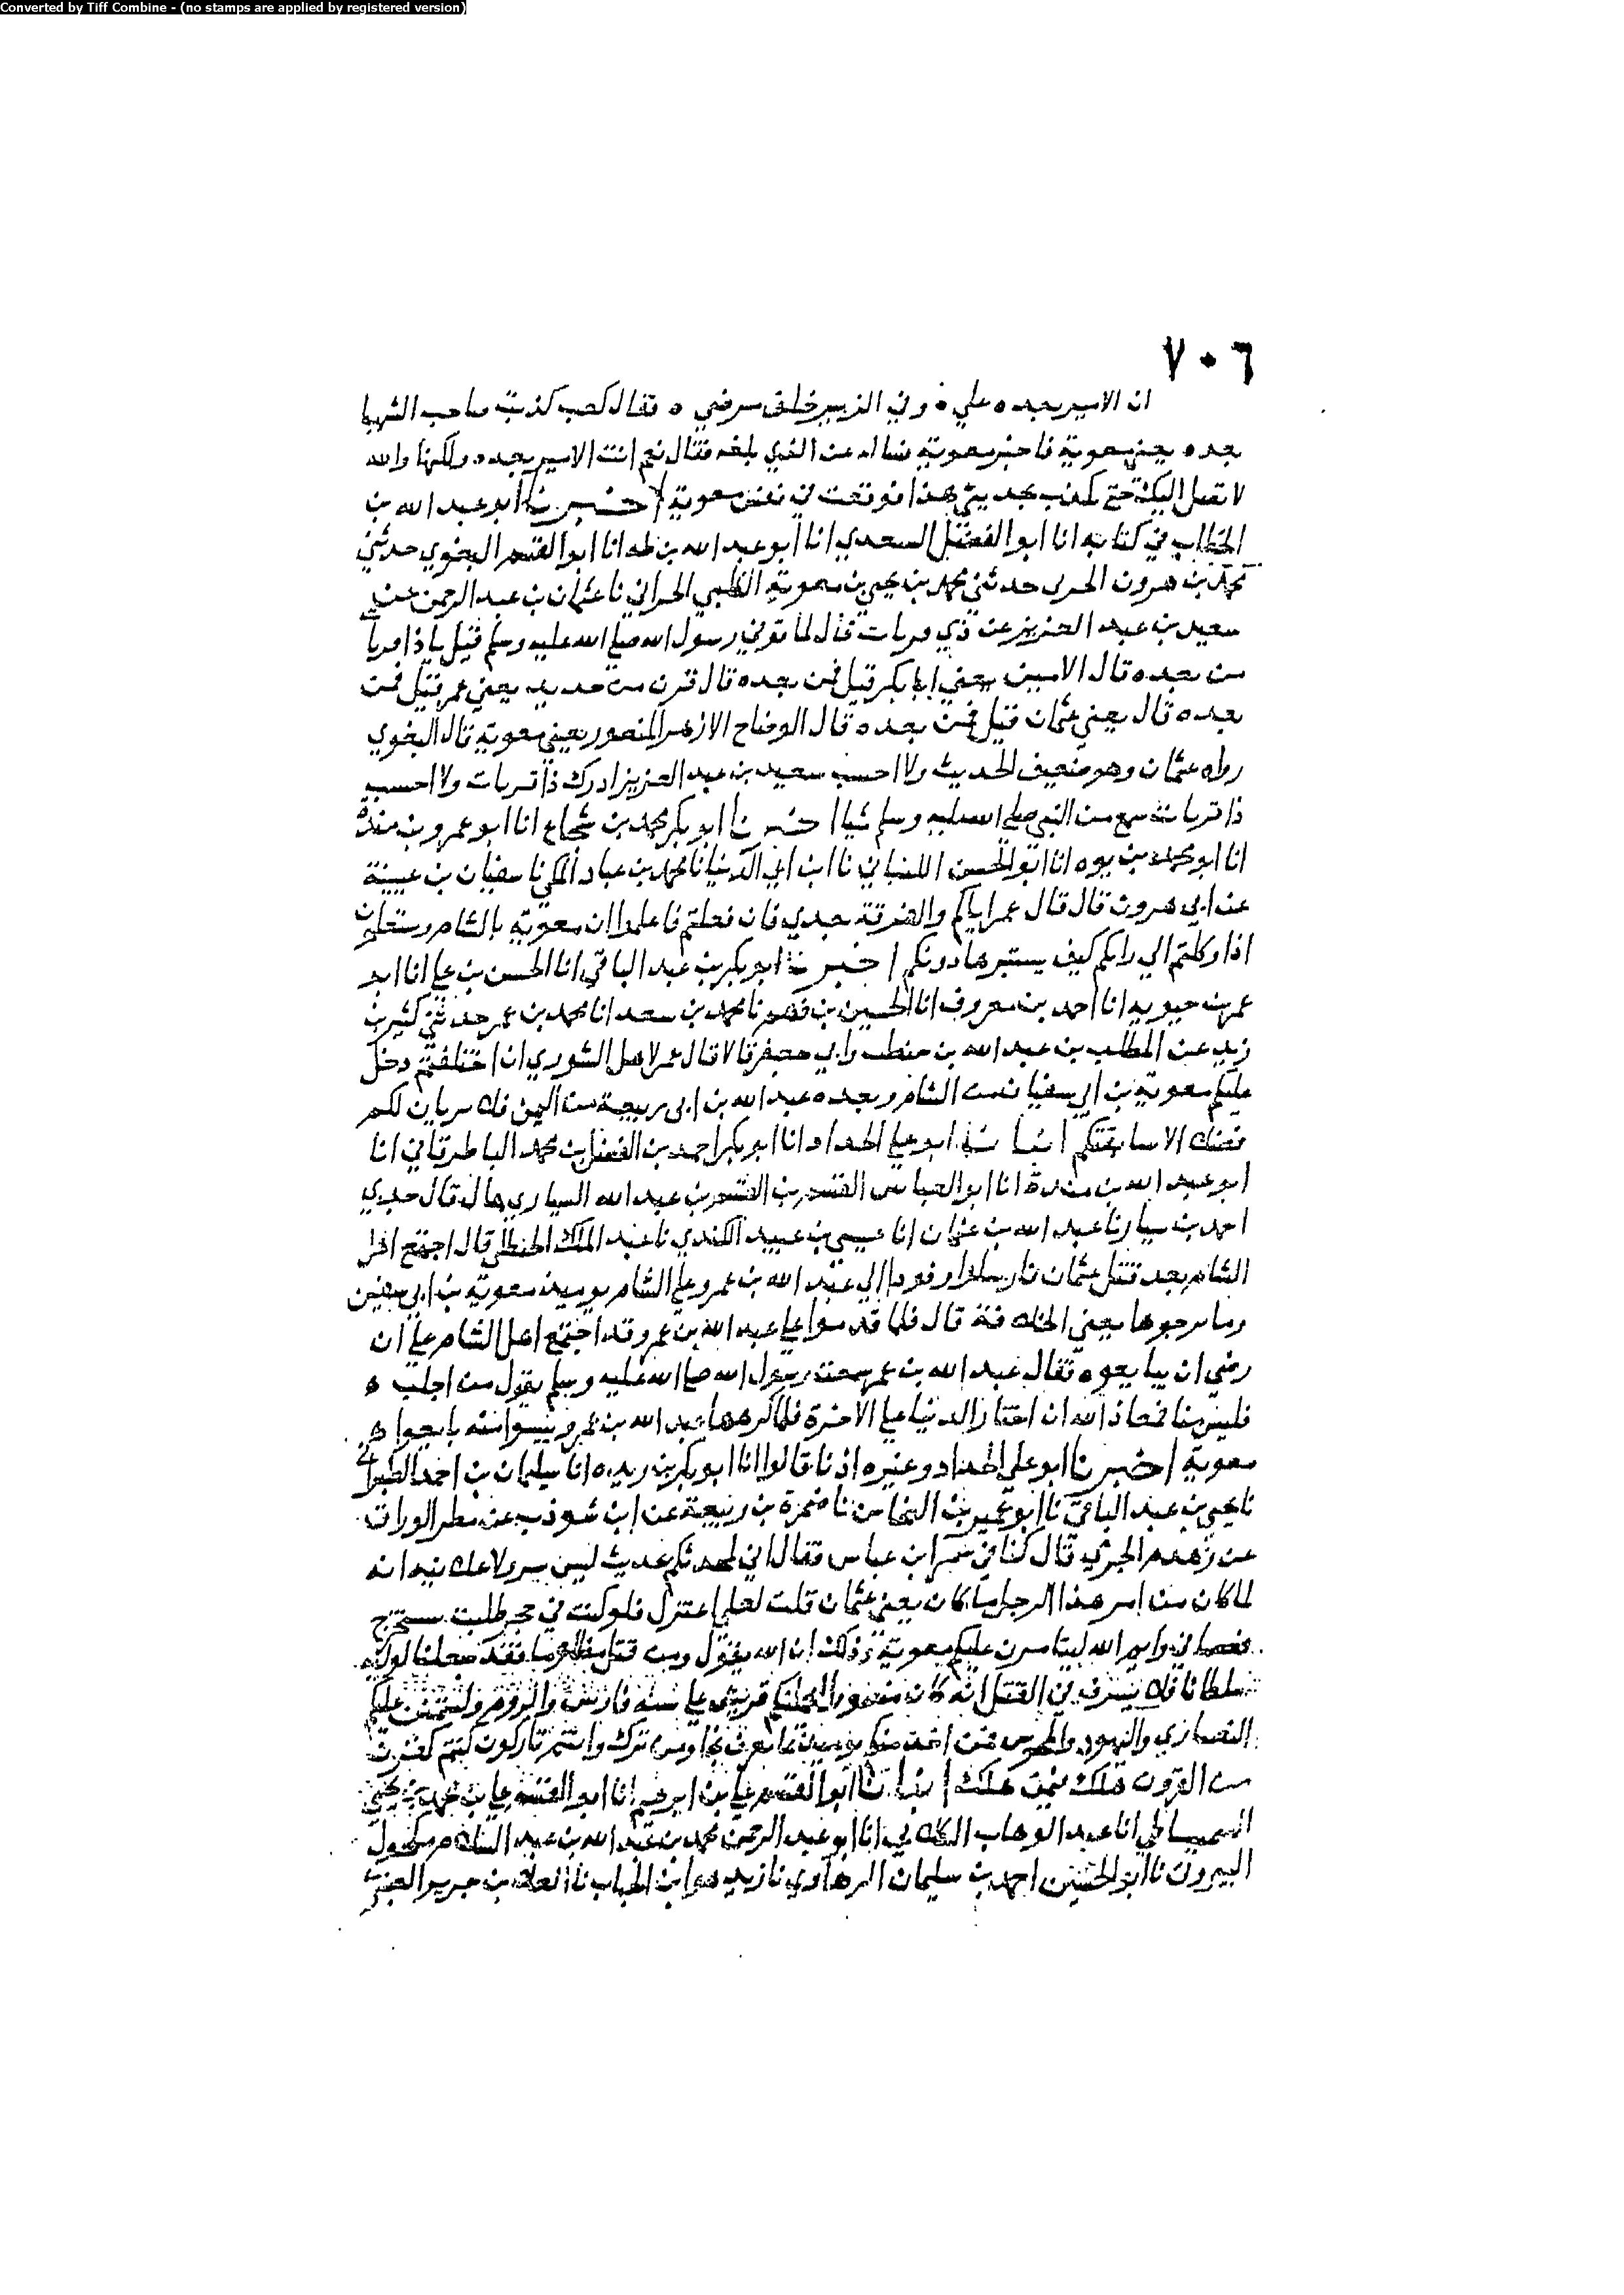 Converted by Tiff Combine - (no stamps are applied by registered version)
٧٠٦
ان الامير بعده علي ه وفي الزبير خلف مرضي ه فقال كعب كذبت صاحب الشهبا
بعده يعني معوية فاخبر معوية فساله عن الذي بلغه فقال نعم انت الامير بعده ولكنها والله
لا تصل اليك حتى تكذب بحديثي هذا فوقعت في نفس معوية اخبرنا ابو عبد الله بن
الخطاب في كتابه انا ابو الفضل السعدي انا ابو عبد الله بن بطه انا ابو القسم البغوي حدثني
محمد بن هرون الحربي حدثني محمد بن يحيى بن معوية الكلبي الحراني نا عثمان بن عبد الرحمن عن
سعيد بن عبد العزيز عن ذي قربات قال لما توفي رسول الله صلى الله عليه وسلم قيل يا ذا قربات
من بعده قال الامين يعني ابا بكر قيل فمن بعده قال قرن من حديد يعني عمر قيل فمن
بعده قال يعني عثمان قيل فمن بعده قال الوضاح الازهر المنصور يعني معوية قال البغوي
رواه عثمان وهو ضعيف الحديث ولا احسب سعيد بن عبد العزيز ادرك ذا قربات ولا احسب
ذا قربات سمع من النبي صلى الله عليه وسلم شيا اخبرنا ابو بكر محمد بن شجاع انا ابو عمرو بن منده
انا ابو محمد بن يوه انا ابو الحسن اللنباني نا ابن ابي الدنيا نا محمد بن عباد المكي نا سفيان بن عيينة
عن ابي هرون قال قال عمر اياكم والفرقة بعدي فان فعلتم فاعلموا ان معوية بالشام وستعلمون
اذا وكلتم الي رايكم كيف يستبزها دونكم اخبرنا ابو بكر بن عبد الباقي انا الحسن بن علي انا ابو
عمر بن حيويه انا احمد بن معروف انا الحسين بن فهم نا محمد بن سعد انا محمد بن عمر حدثني كثير بن
زيد عن المطلب بن عبد الله بن حنطب وابي جعفر قالا قال عمر لاهل الشوري ان اختلفتم دخل
عليكم معوية بن ابي سفيان من الشام وبعده عبد الله بن ابي ربيعة من اليمن فلا يريان لكم
فضلا الا سابقتكم انبانا ابو علي الحداد انا ابو بكر احمد بن الفضل بن محمد الباطرقاني انا
ابو عبد الله بن مندة انا ابو العباس القسم بن القسم بن عبد الله السياري قال قال جدي
احمد بن سيار نا عبد الله بن عثمان انا عيسى بن عبيد الكندي نا عبد الملك الحنظلي قال اجتمع اهل
الشام بعد قتل عثمان فارسلوا وفودا الي عبد الله بن عمر وعلى الشام يوميذ معوية بن ابي سفين
وما يرجوها يعني الخلافة قال فلما قدموا علي عبد الله بن عمر وقد اجتمع اهل الشام علي ان
رضي ان يبايعوه فقال عبد الله بن عمر سمعت رسول الله صلى الله عليه وسلم يقول من اجلب ه
فليس منا فمعاذ الله ان اختار الدنيا على الاخرة فلما كرهها عبد الله بن عمر ويئسوا منه بايعوا ه
معوية اخبرنا ابو علي الحداد وغيره اذنا قالوا انا ابو بكر بن ريذه انا سليمان بن احمد الطبراني
نا يحيى بن عبد الباقي نا ابو عمير بن النحاس نا ضمرة بن ربيعة عن ابن شوذب عن مطر الوراق
عن زهدم الجرمي قال كنا في سمر ابن عباس فقال اني لمحدثكم بحديث ليس بسر ولا علانية انه
لما كان من امر هذا الرجل ما كان يعني عثمان قلت لعلي اعتزل فلو كنت في جحر طلبت ستخرج
فعصاني وايم الله ليتامرن عليكم معوية وذلك ان الله يقول ومن قتل مظلوما فقد جعلنا لوليه
سلطانا فلا يسرف في القتل انه كان منصورا ولتحملنكم قريش على سنة فارس والروم وليتمنن عليكم
النصاري واليهود والمجوس فمن اخذ منكم يوميذ بما يعرف نجا ومن ترك وانتم تاركون كنتم كقرن
من القرون هلك فيمن هلك انبانا ابو القسم علي بن ابرهيم انا ابو القسم علي بن محمد بن يحيى
السميساطي انا عبد الوهاب الكلابي انا ابو عبد الرحمن محمد بن عبد الله بن عبد السلام مكحول
البيروتي نا ابو الحسين احمد بن سليمان الرهاوي نا زيد هو ابن الحباب نا العلا بن جرير العنبري